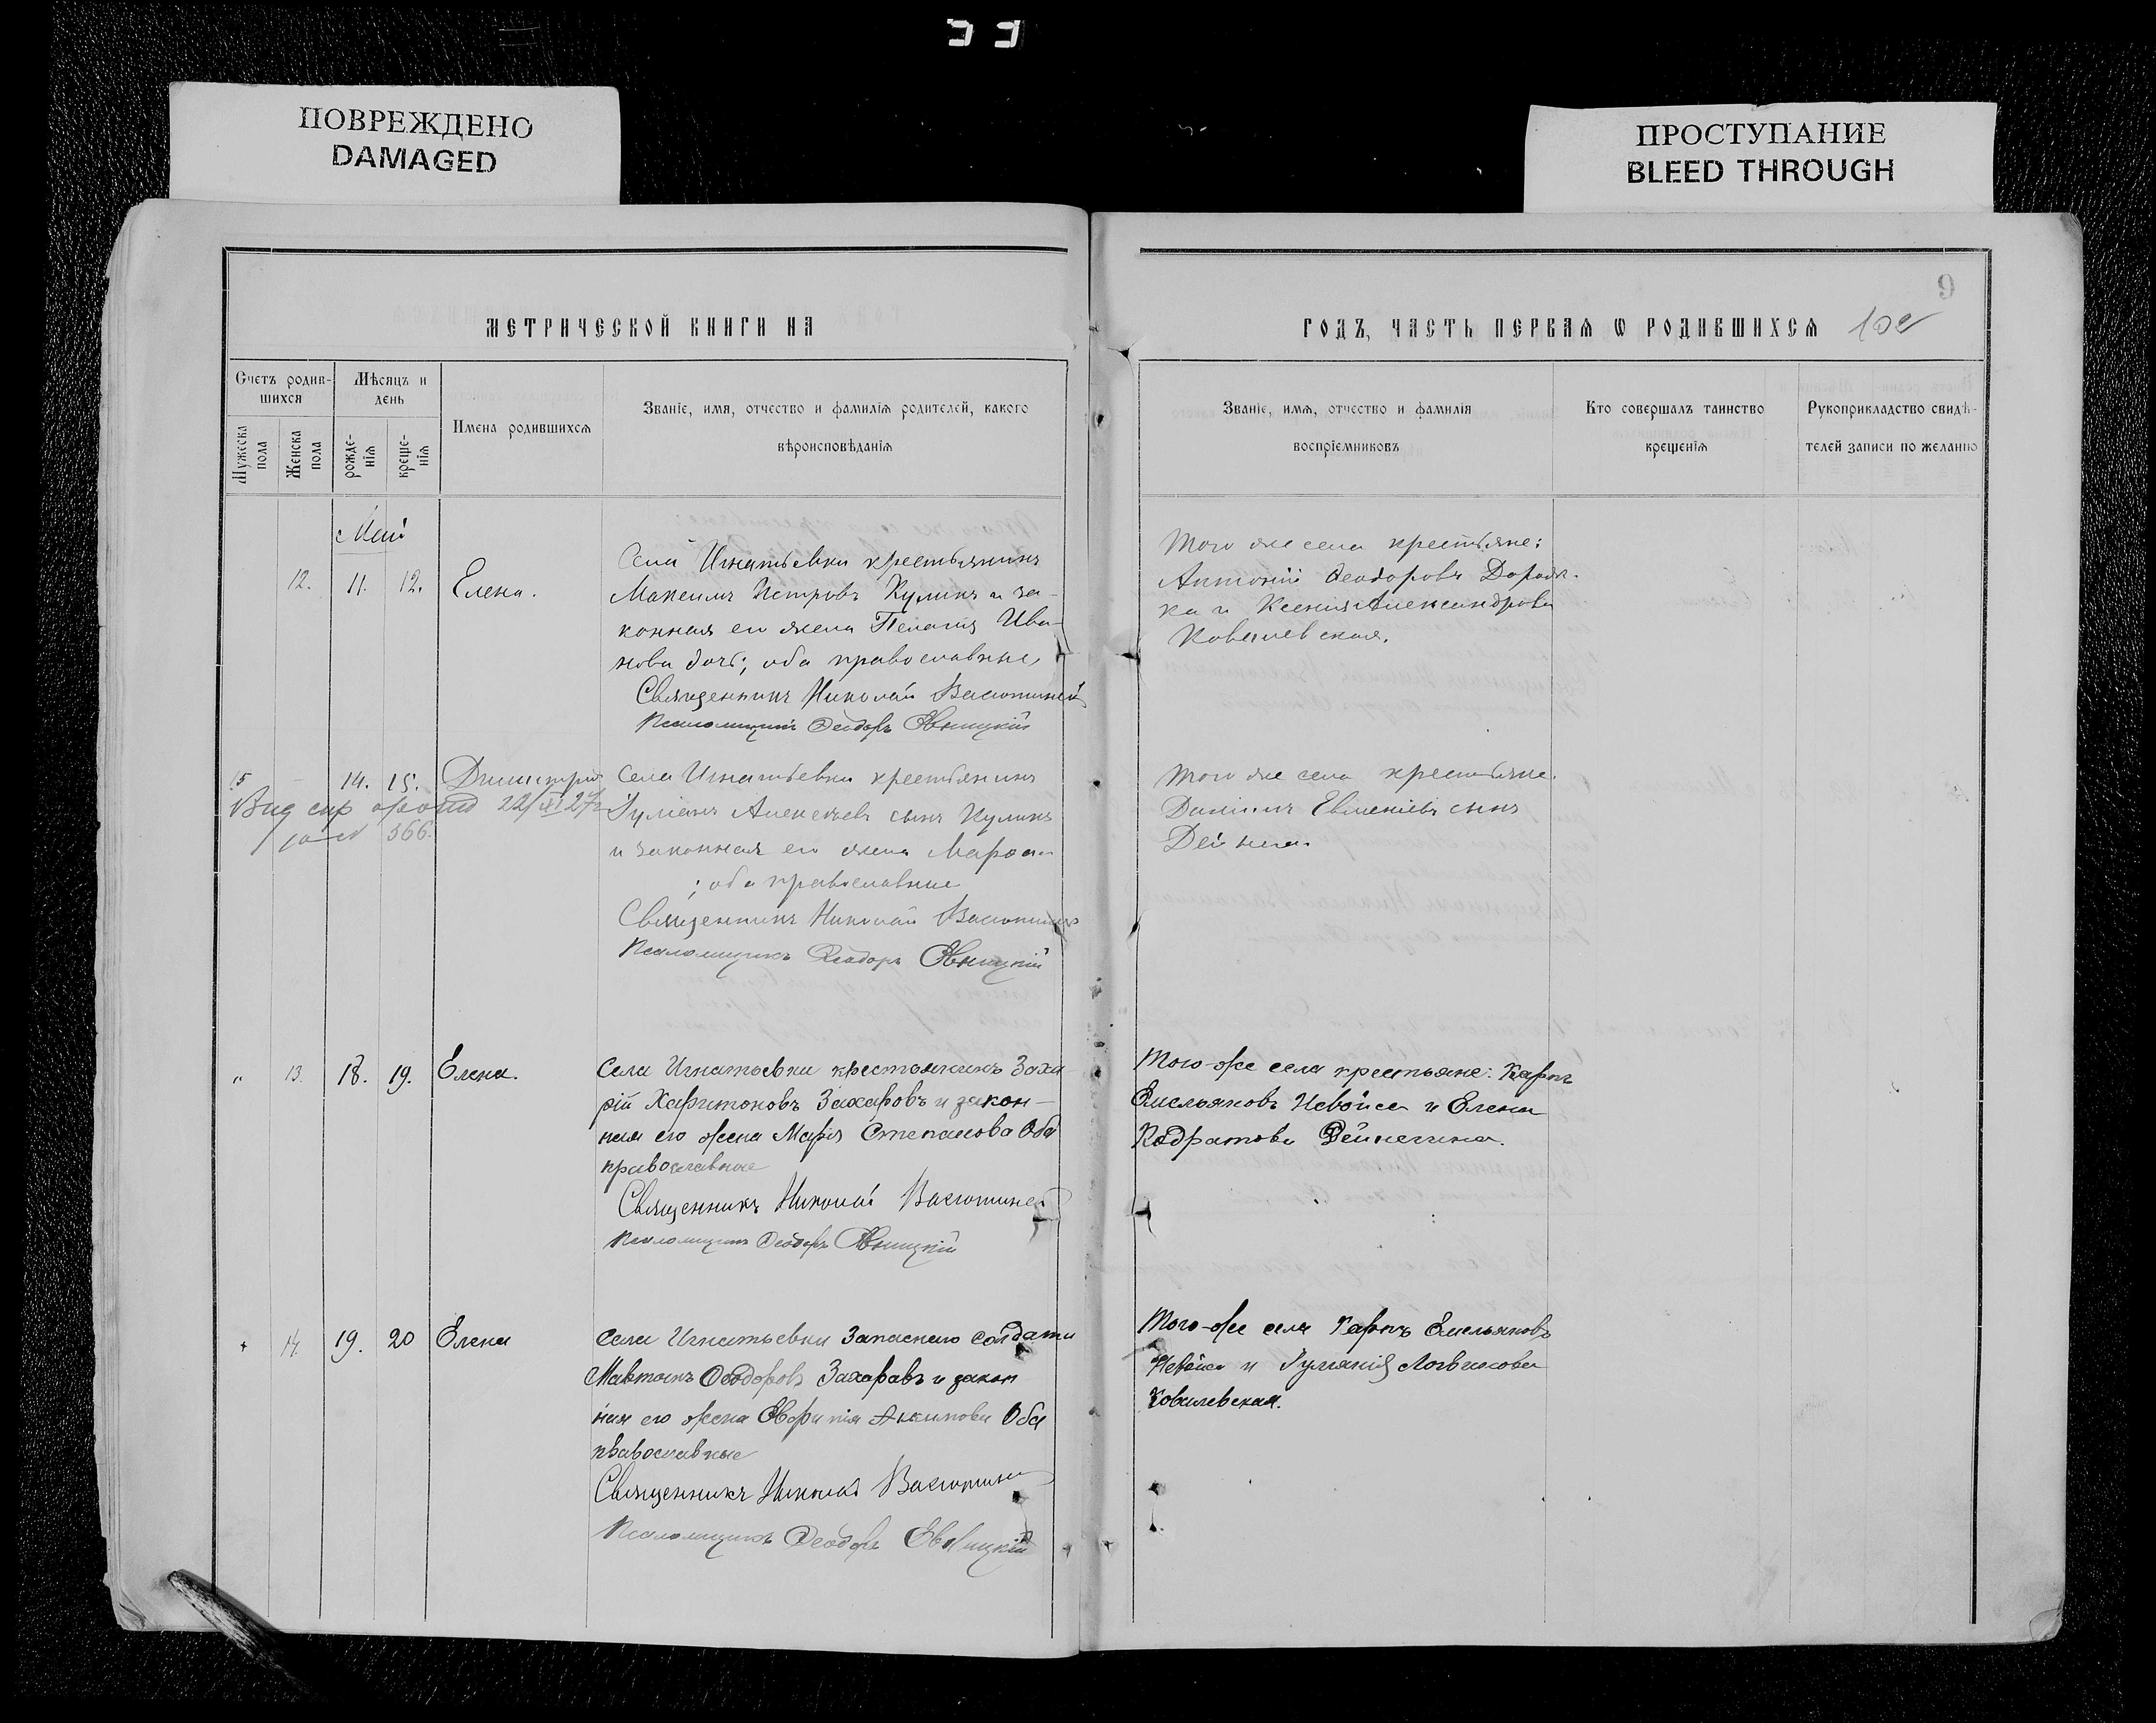 ПОВРЕЖДЕНО
DAMAGED
ПРОСТУПАНИЕ
BLEED THROUGH
9
МЕТРИЧЕСКОЙ КНИГИ НА
ГОДЪ, ЧАСТЬ ПЕРВАЯ Ѡ РОДИВШИХСЯ
Счетъ родив-
шихся
Мѣсяцъ и
день
Мужеска
пола
Женска
пола
рожде-
нія
креще-
нія
Имена родившихся
Званіе, имя, отчество и фамилія родителей, какого
вѣроисповѣданія
Званіе, имя, отчество и фамилія
воспріемниковъ
Кто совершалъ таинство
крещенія
Рукоприкладство свидѣ-
телей записи по желанію
Май
12. 11. 12. Елена.
Села Игнатьевки крестьянинъ
Максимъ Петровъ Куликъ и за-
конная его жена Пелагія Ива-
нова дочь; оба православные
Священникъ Николай
Псаломщикъ Ѳеодоръ
Того же села крестьяне:
Антоній Ѳеодоровъ
ка и Ксенія Александрова
Ковалевская.
15 14. 15. Димитрій
22/XI 27
366.
Села Игнатьевки крестьянинъ
Іуліанъ Алексѣевъ сынъ Куликъ
и законная его жена
; оба православные
Священникъ Николай
Псаломщикъ Ѳеодоръ
Того же села крестьяне.
Даніилъ Евменіевъ сынъ
Дейнега.
" 13. 18. 19. Елена.
Села Игнатьевки крестьянинъ Заха
рій Харитоновъ Захаровъ и закон-
ная его жена Марія Степанова Оба
православные
Священникъ Николай
Псаломщикъ Ѳеодоръ
Того-же села крестьяне: Карпъ
Емельяновъ и Елена
Кодратова
14. 19. 20 Елена
Села Игнатьевки Запаснаго солдата
Ѳеодоровъ Захаровъ и закон
ная его жена Акимова Оба
православные
Священникъ Николай
Псаломщикъ Ѳеодоръ
Того-же села Карпъ Емельяновъ
и Іуліанія Логвинова
Ковалевская.